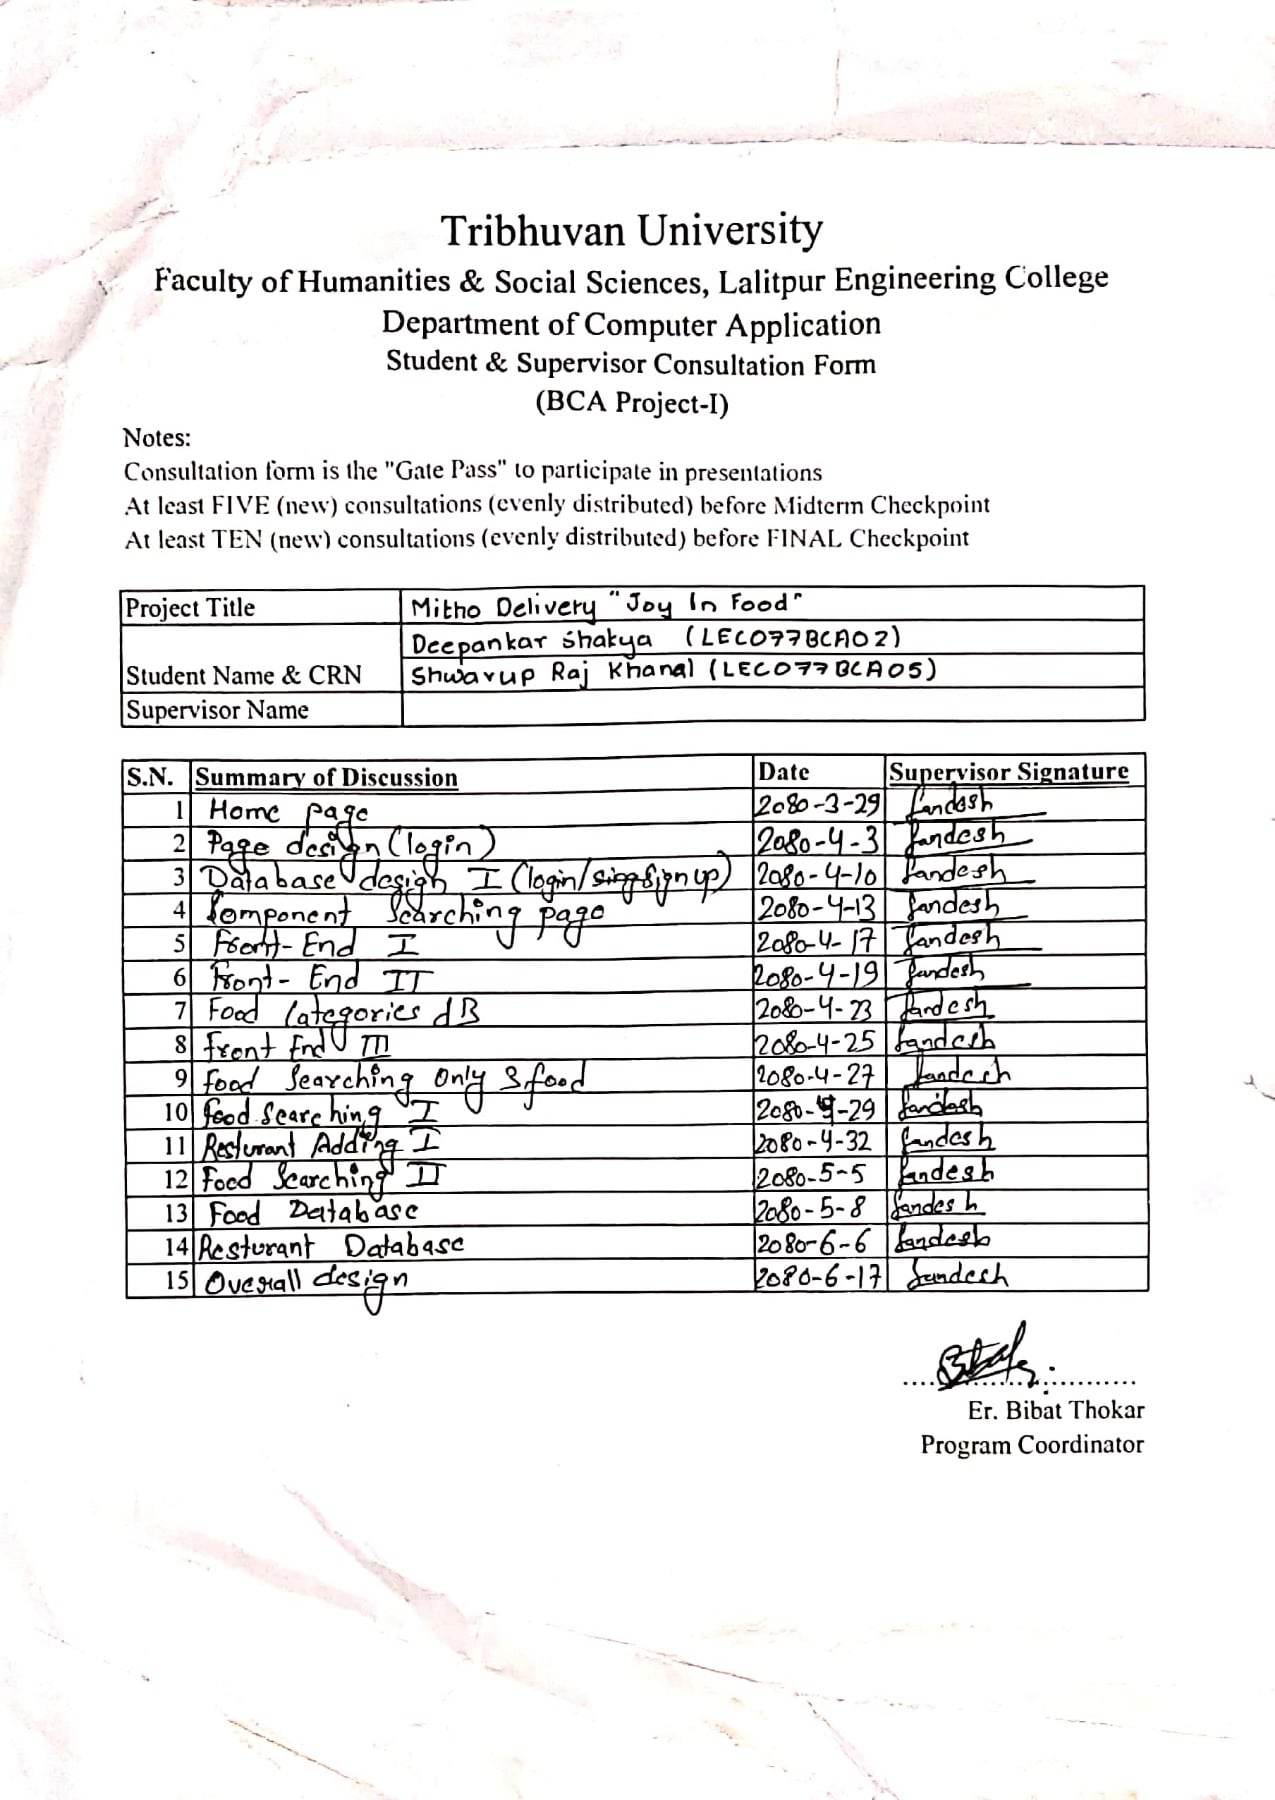 Tribhuvan University
Faculty of Humanities & Social Sciences, Lalitpur Engineering College
Department of Computer Application
Student & Supervisor Consultation Form
(BCA Project-I)
Notes:
Consultation form is the "Gate Pass" to participate in presentations
At least FIVE (new) consultations (evenly distributed) before Midterm Checkpoint
At least TEN (new) consultations (evenly distributed) before FINAL Checkpoint
Project Title Mitho Delivery "Joy In Food"
Deepankar Shakya (LEC077BCA02)
Student Name & CRN Shwarup Raj Khanal (LEC077BCA05)
Supervisor Name
S.N. Summary of Discussion Date Supervisor Signature
1 Home page 2080-3-29 Sandesh
2 Page design (login) 2080-4-3 Sandesh
3 Database design I (login/ signup) 2080-4-10 Sandesh
4 Component Searching page 2080-4-13 Sandesh
5 Front-End I 2080-4-17 Sandesh
6 Front-End II 2080-4-19 Sandesh
7 Food Categories dB 2080-4-23 Sandesh
8 Front End III 2080-4-25 Sandesh
9 Food Searching Only food 2080-4-27 Sandesh
10 food Searching I 2080-4-29 Sandesh
11 Resturant Adding I 2080-4-32 Sandesh
12 Food Searching II 2080-5-5 Sandesh
13 Food Database 2080-5-8 Sandesh
14 Resturant Database 2080-6-6 Sandesh
15 Overall design 2080-6-17 Sandesh
Er. Bibat Thokar
Program Coordinator